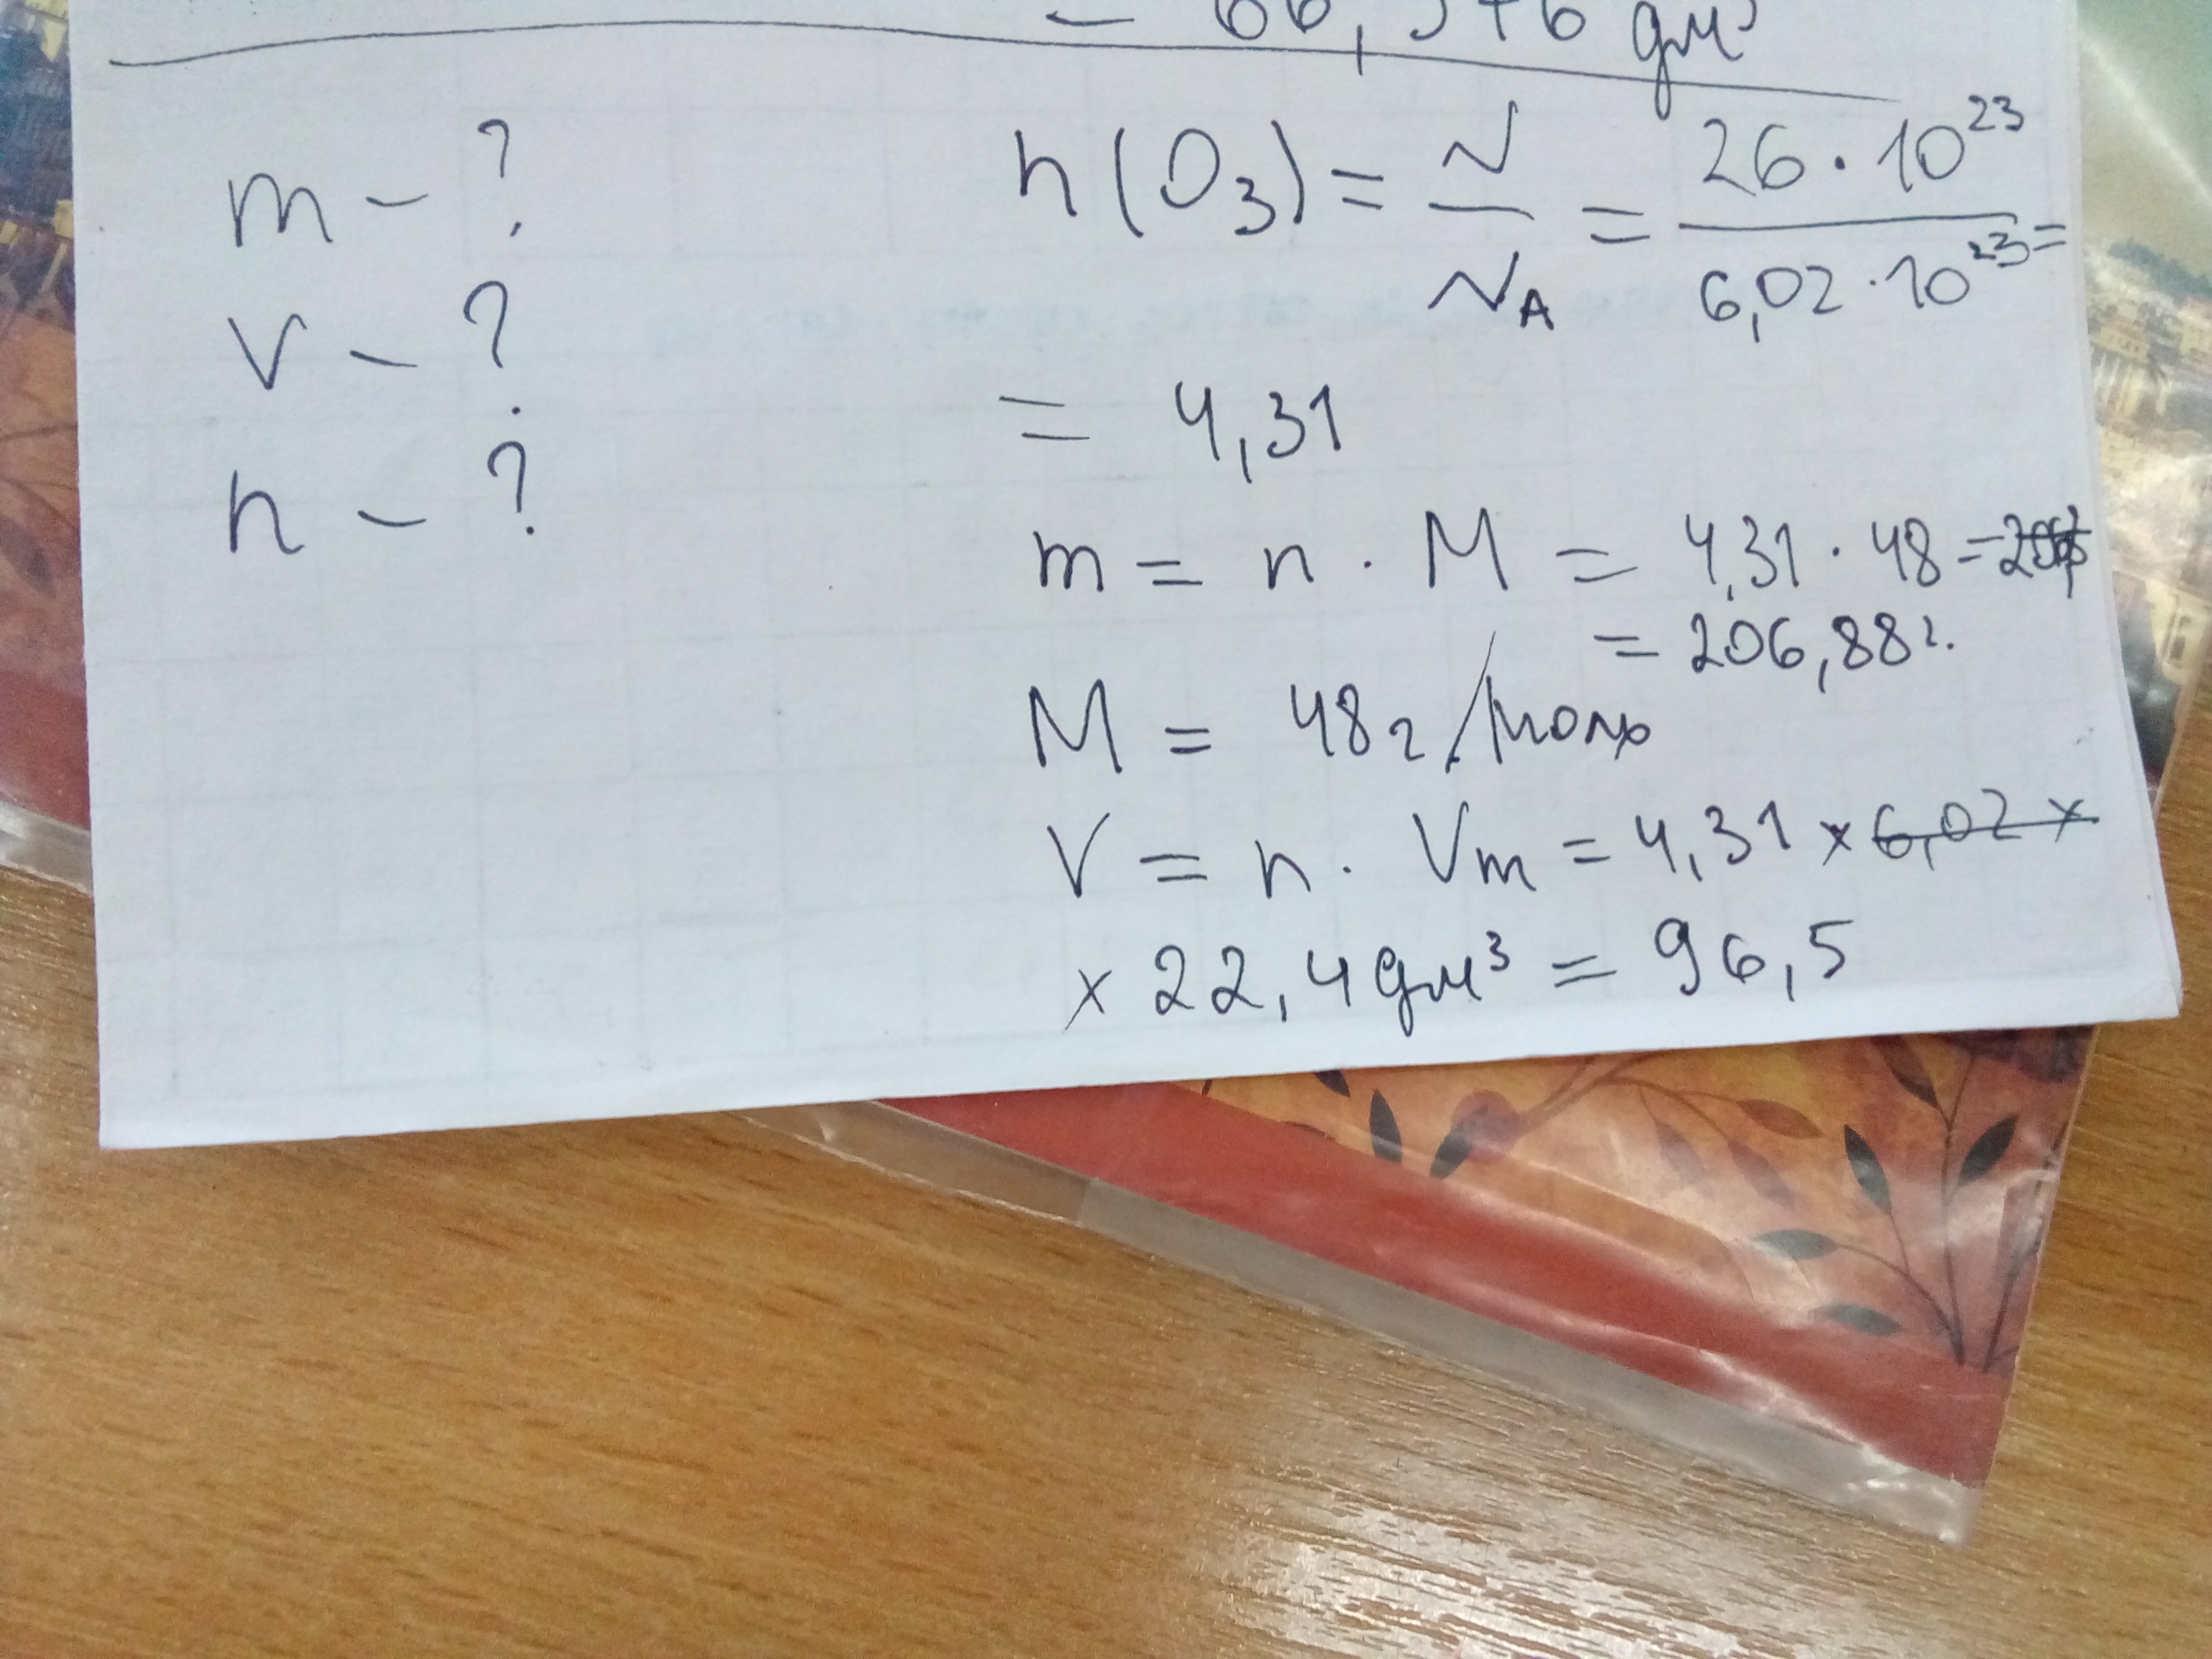 m - ?
V - ?
n - ?
n(O₃) = N / N_A = 26 · 10²³ / 6,02 · 10²³ =
= 4,31
m = n · M = 4,31 · 48 =
= 206,88 г.
M = 48 г/моль
V = n · Vm = 4,31 × 6,02 ×
× 22,4 дм³ = 96,5